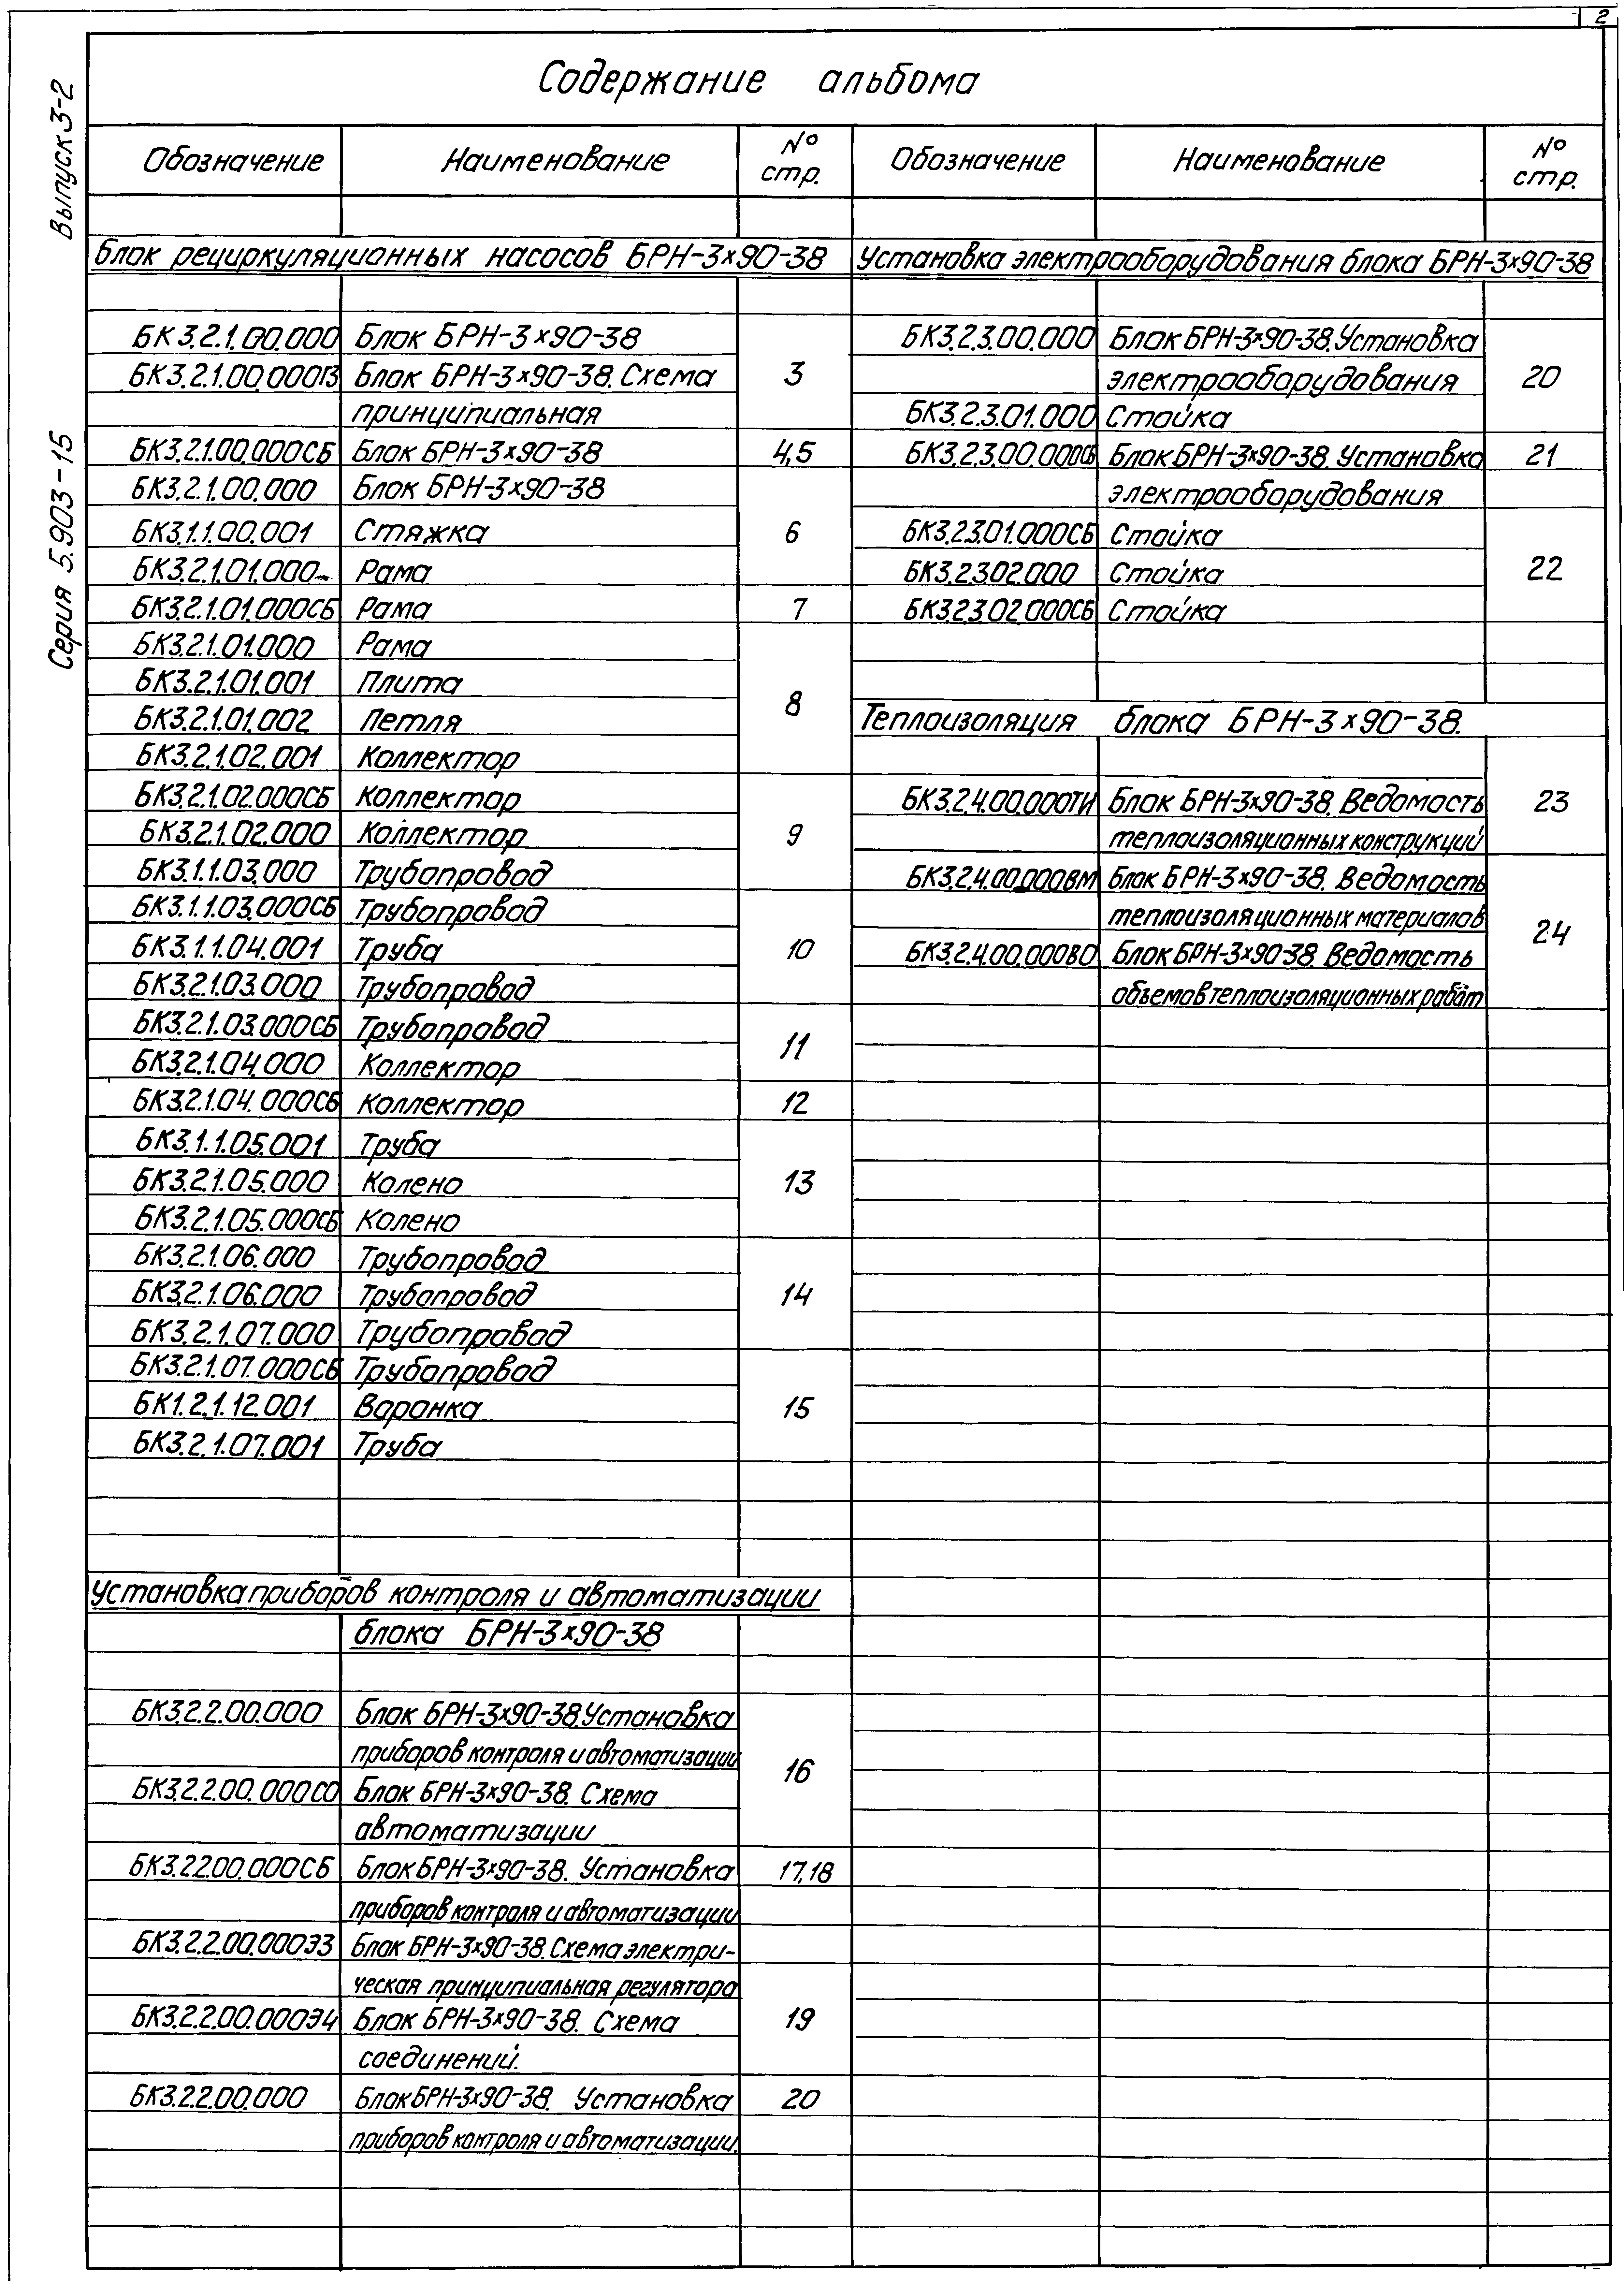 2
Серия 5.903-15 Выпуск 3-2
Содержание альбома
Обозначение Наименование № стр. Обозначение Наименование № стр.
Блок рециркуляционных насосов БРН-3×90-38
БК3.2.1.00.000 Блок БРН-3×90-38
БК3.2.1.00.000ПЗ Блок БРН-3×90-38. Схема 3
принципиальная
БК3.2.1.00.000СБ Блок БРН-3×90-38 4,5
БК3.2.1.00.000 Блок БРН-3×90-38
БК3.1.1.00.001 Стяжка 6
БК3.2.1.01.000 Рама
БК3.2.1.01.000СБ Рама 7
БК3.2.1.01.000 Рама
БК3.2.1.01.001 Плита
8
БК3.2.1.01.002 Петля
БК3.2.1.02.001 Коллектор
БК3.2.1.02.000СБ Коллектор
БК3.2.1.02.000 Коллектор 9
БК3.1.1.03.000 Трубопровод
БК3.1.1.03.000СБ Трубопровод
БК3.1.1.04.001 Труба 10
БК3.2.1.03.000 Трубопровод
БК3.2.1.03.000СБ Трубопровод
11
БК3.2.1.04.000 Коллектор
БК3.2.1.04.000СБ Коллектор 12
БК3.1.1.05.001 Труба
БК3.2.1.05.000 Колено 13
БК3.2.1.05.000СБ Колено
БК3.2.1.06.000 Трубопровод
БК3.2.1.06.000 Трубопровод 14
БК3.2.1.07.000 Трубопровод
БК3.2.1.07.000СБ Трубопровод
БК1.2.1.12.001 Воронка 15
БК3.2.1.07.001 Труба
Установка приборов контроля и автоматизации
блока БРН-3×90-38
БК3.2.2.00.000 Блок БРН-3×90-38. Установка
приборов контроля и автоматизации
16
БК3.2.2.00.000СО Блок БРН-3×90-38. Схема
автоматизации
БК3.2.2.00.000СБ Блок БРН-3×90-38. Установка 17,18
приборов контроля и автоматизации
БК3.2.2.00.000Э3 Блок БРН-3×90-38. Схема электри-
ческая принципиальная регулятора
БК3.2.2.00.000Э4 Блок БРН-3×90-38. Схема 19
соединений.
БК3.2.2.00.000 Блок БРН-3×90-38. Установка 20
приборов контроля и автоматизации.
Установка электрооборудования блока БРН-3×90-38
БК3.2.3.00.000 Блок БРН-3×90-38. Установка
электрооборудования 20
БК3.2.3.01.000 Стойка
БК3.2.3.00.000СБ Блок БРН-3×90-38. Установка 21
электрооборудования
БК3.2.3.01.000СБ Стойка
БК3.2.3.02.000 Стойка 22
БК3.2.3.02.000СБ Стойка
Теплоизоляция блока БРН-3×90-38.
БК3.2.4.00.000ТИ Блок БРН-3×90-38. Ведомость 23
теплоизоляционных конструкций
БК3.2.4.00.000ВМ Блок БРН-3×90-38. Ведомость
теплоизоляционных материалов
24
БК3.2.4.00.000ВО Блок БРН-3×90-38. Ведомость
объемов теплоизоляционных работ